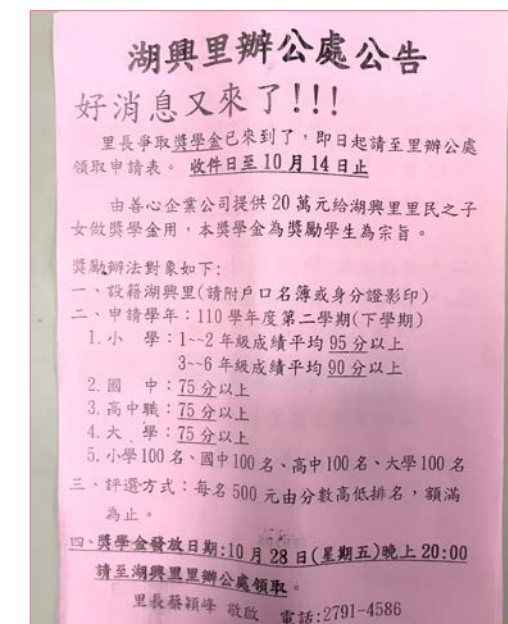 湖興里辦公處公告
好消息又來了!!!
里長爭取獎學金已來到了,即日起請至里辦公處
領取申請表。 收件日至10月14日止
由善心企業公司提供20萬元給湖興里里民之子
女做獎學金用,本獎學金為獎勵學生為宗旨。
獎勵辦法對象如下:
一、設籍湖興里(請附戶口名簿或身分證影印)
二、申請學年:110學年度第二學期(下學期)
1.小 學:1~~2年級成績平均 95分以上
3~~6年級成績平均 90分以上
2.國 中:75分以上
3.高中職:75分以上
4.大 學:75分以上
5.小學100名、國中100名、高中100名、大學100名
三、評選方式:每名500元由分數高低排名,額滿
為止。
四、獎學金發放日期:10月28日(星期五)晚上20:00
請至湖興里里辦公處領取。
里長蔡穎峰 敬啟 電話:2791-4586